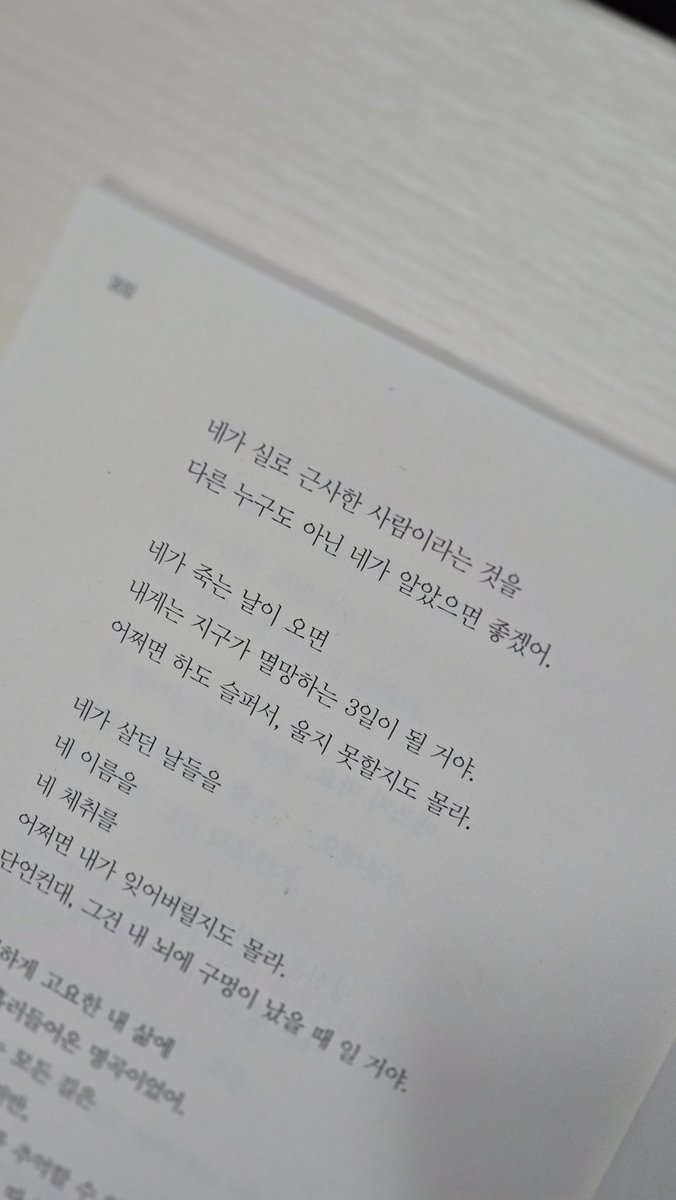 네가 실로 근사한 사람이라는 것을
다른 누구도 아닌 네가 알았으면 좋겠어.
네가 죽는 날이 오면
내게는 지구가 멸망하는 3일이 될 거야.
어쩌면 하도 슬퍼서, 울지 못할지도 몰라.
네가 살던 날들을
네 이름을
네 체취를
어쩌면 내가 잊어버릴지도 몰라.
단언컨대, 그건 내 뇌에 구멍이 났을 때 일 거야.
고요한 내 삶에
명곡이었어.
모든 길은